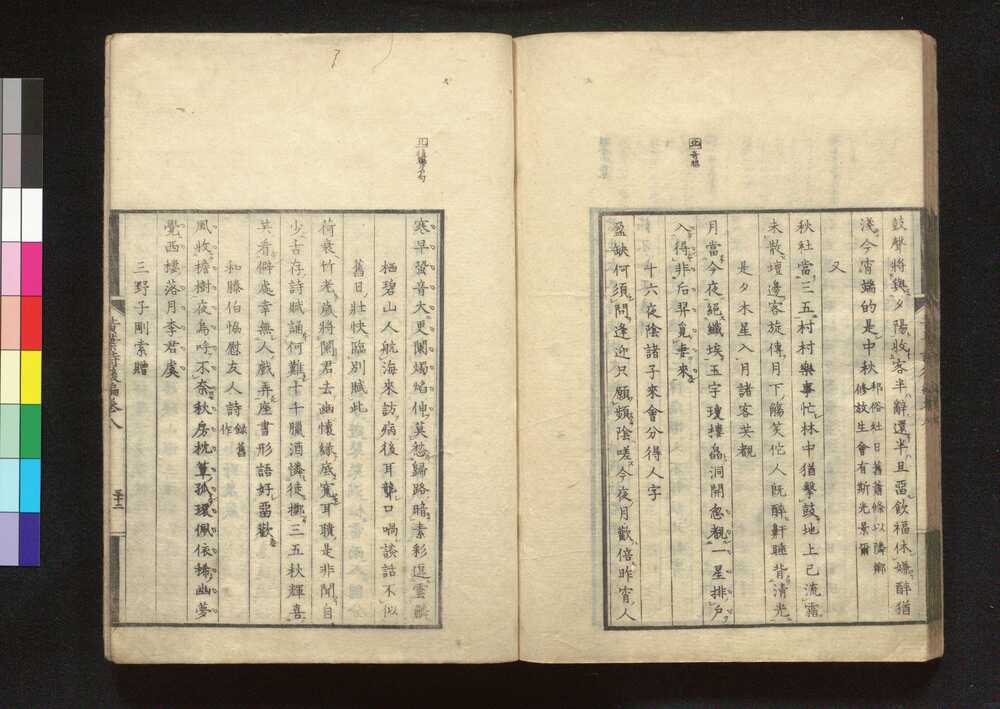 鼓聲將與夕陽收客半辭還半且畱飲福休嫌醉猶
淺今宵端的是中秋邦俗社日舊舊條以隣鄉
修放生會有斯光景爾
又
秋社當三五村村樂事忙林中猶擊鼓地上已流霜
未散壇邊客旋傳月下觴笑佗人既醉鼾睡背清光
是夕木星入月諸客共觀
月當今夜絕纖埃玉宇瓊樓皛洞開忽觀一星排戶
入得非后羿覓妻來
十六夜陰諸子來會分得人字
盈缺何須問逢迎只願頻陰嗟今夜月歡倍昨宵人
寒早蛩音大更闌燭焰伸莫愁歸路暗素彩逗雲
栖碧山人航海來訪病後耳聾口喎談話不似
舊日壯快臨別賦此
荷衰竹老歲將闌君去幽懷緣底寬耳聵是非聞自
少舌存詩賦誦何難十千臘酒憐徒擲三五秋輝喜
共看僻處幸無人戲弄座書形語好畱歡
和滕伯恊慰友人詩錄舊作
風收檐樹夜烏呼不奈秋房枕簟孤環佩依稀幽夢
覺西樓落月李君虞
三野子剛索贈
黃葉夕陽邨舍詩後編卷八